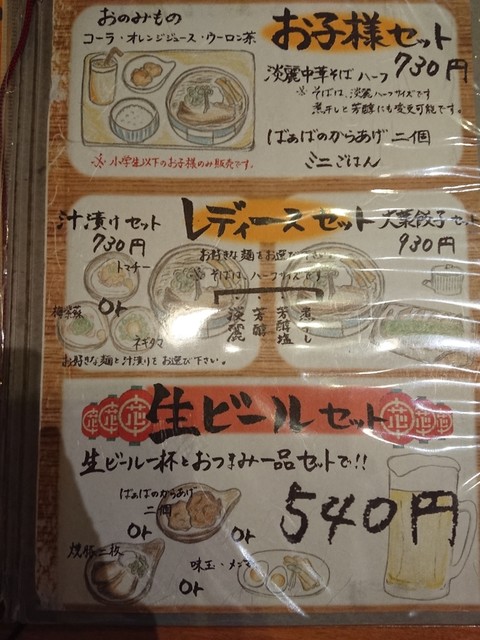 おのみもの
コーラ・オレンジジュース・ウーロン茶
お子様セット
730円
淡麗中華そばハーフ
※そばは、淡麗ハーフサイズです
煮干しと芳醇にも変更可能です。
ばぁばのからあげ二個
ミニごはん
※小学生以下のお子様のみ販売です。
レディースセット
汁漬けセット
730円
大葉餃子セット
930円
お好きな麺をお選び
※そばは、ハーフサイズです
トマチー
or
梅紫蘇
ネギタマ
淡麗
芳醇
芳醇塩
煮干し
お好きな麺と汁漬けをお選び下さい。
生ビールセット
生ビール一杯とおつまみ一品セットで!!
540円
ばぁばのからあげ
二個
or
or
焼豚二枚
味玉・メンマ
or